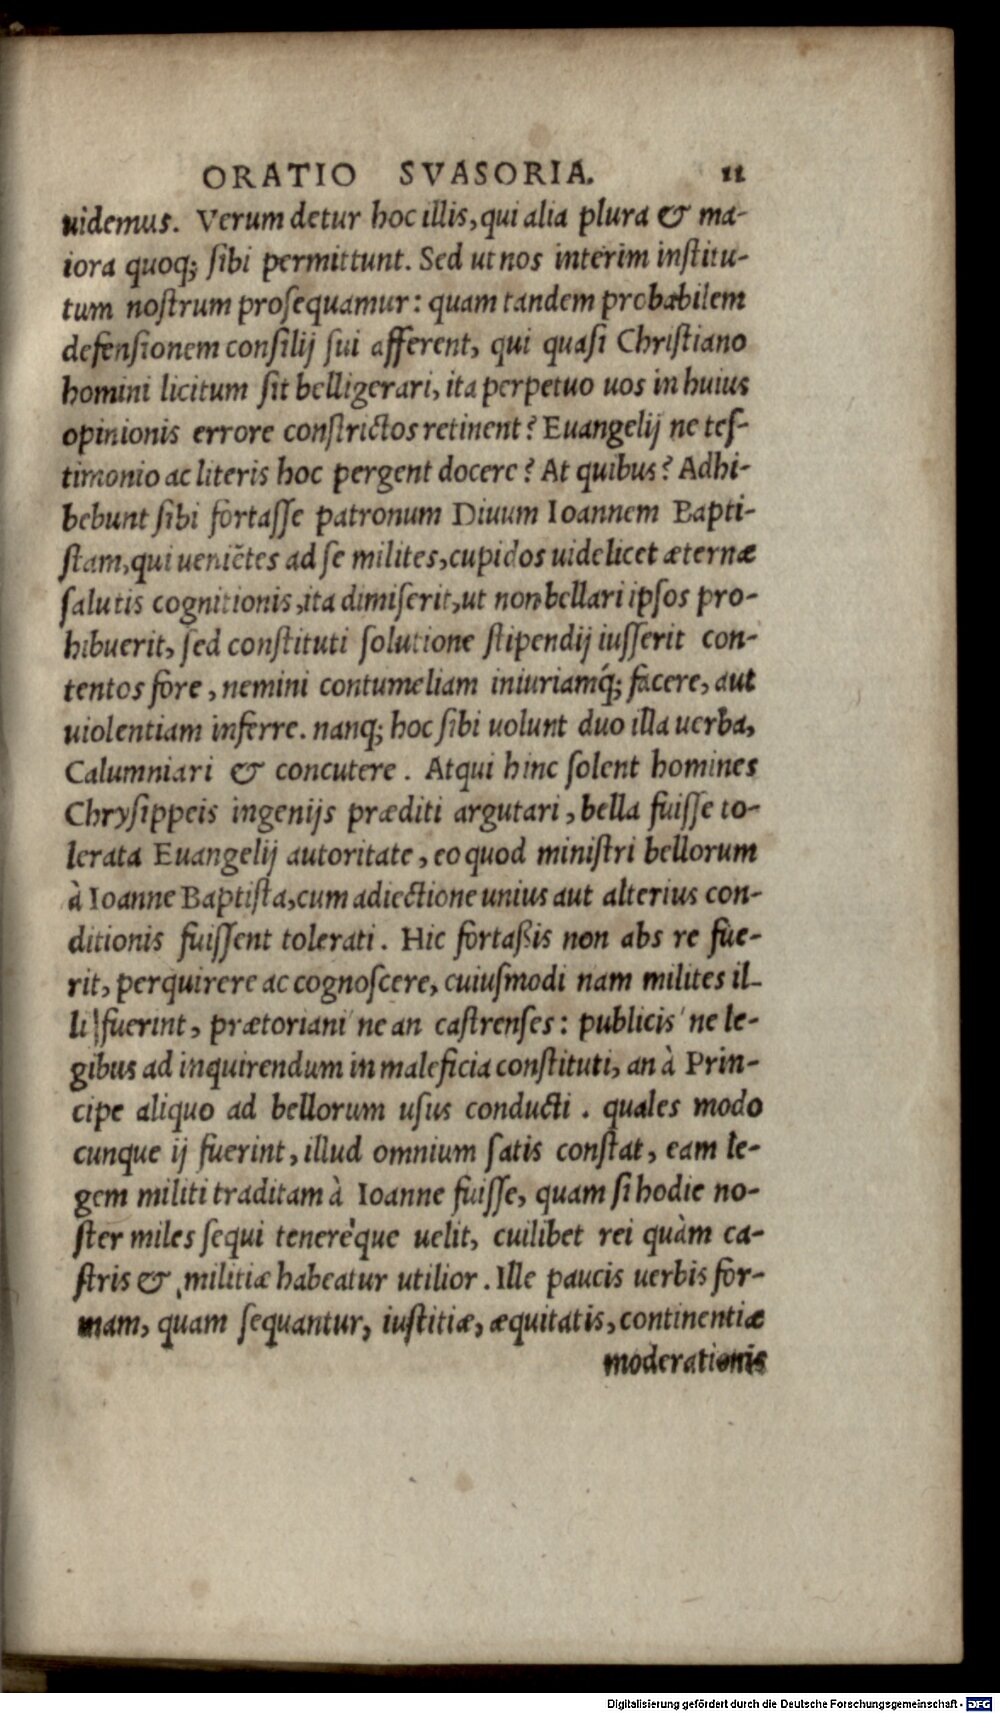 ORATIO SVASORIA. 11
uidemus. Verum detur hoc illis, qui alia plura & ma-
iora quoq; ſibi permittunt. Sed ut nos interim inſtitu-
tum noſtrum proſequamur: quam tandem probabilem
defenſionem conſilij ſui afferent, qui quaſi Chriſtiano
homini licitum ſit belligerari, ita perpetuo uos in huius
opinionis errore conſtrictos retinent? Euangelij ne teſ-
timonio ac literis hoc pergent docere? At quibus? Adhi-
bebunt ſibi fortaſſe patronum Diuum Ioannem Bapti-
ſtam, qui veniẽtes ad ſe milites, cupidos uidelicet æternæ
ſalutis cognitionis, ita dimiſerit, ut non bellari ipſos pro-
hibuerit, ſed conſtituti ſolutione ſtipendij iuſſerit con-
tentos fore, nemini contumeliam iniuriamq́; facere, aut
uiolentiam inferre. nanq; hoc ſibi uolunt duo illa uerba,
Calumniari & concutere. Atqui hinc ſolent homines
Chryſippeis ingenijs præditi argutari, bella fuiſſe to-
lerata Euangelij autoritate, eo quod miniſtri bellorum
à Ioanne Baptiſta, cum adiectione unius aut alterius con-
ditionis fuiſſent tolerati. Hic fortaßis non abs re fue-
rit, perquirere ac cognoſcere, cuiuſmodi nam milites il-
li fuerint, prætoriani ne an caſtrenſes: publicis ne le-
gibus ad inquirendum in maleficia conſtituti, an à Prin-
cipe aliquo ad bellorum uſus conducti. quales modo
cunque ij fuerint, illud omnium ſatis conſtat, eam le-
gem militi traditam à Ioanne fuiſſe, quam ſi hodie no-
ſter miles ſequi tenere'que uelit, cuilibet rei quàm ca-
ſtris & militiæ habeatur utilior. Ille paucis uerbis for-
mam, quam ſequantur, iuſtitiæ, æquitatis, continentiæ
moderationis
Digitalisierung gefördert durch die Deutsche Forschungsgemeinschaft - DFG